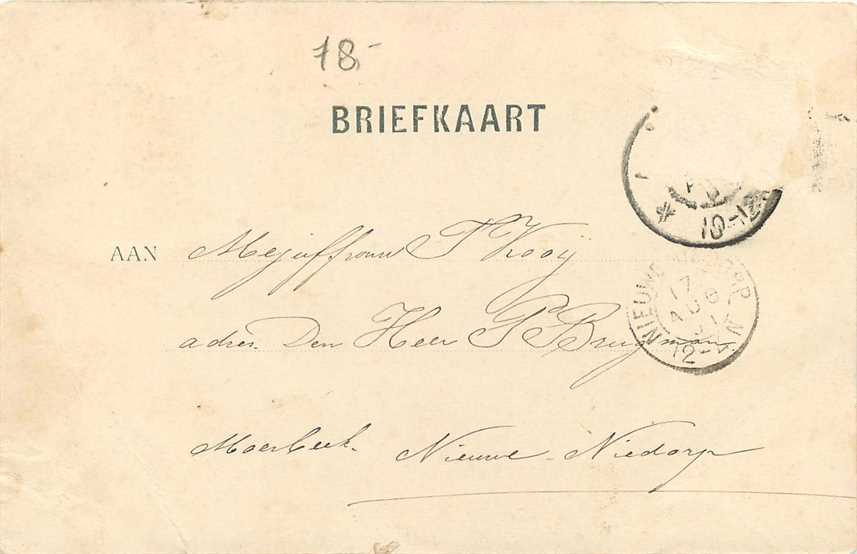 78,-
BRIEFKAART
10-12
AAN Mejuffrouw T Kooij
NIEUWE NIEDORP
17 AUG 01
12-4N
adres. Den Heer P Brugman.
Moerbeek. Nieuwe-Niedorp